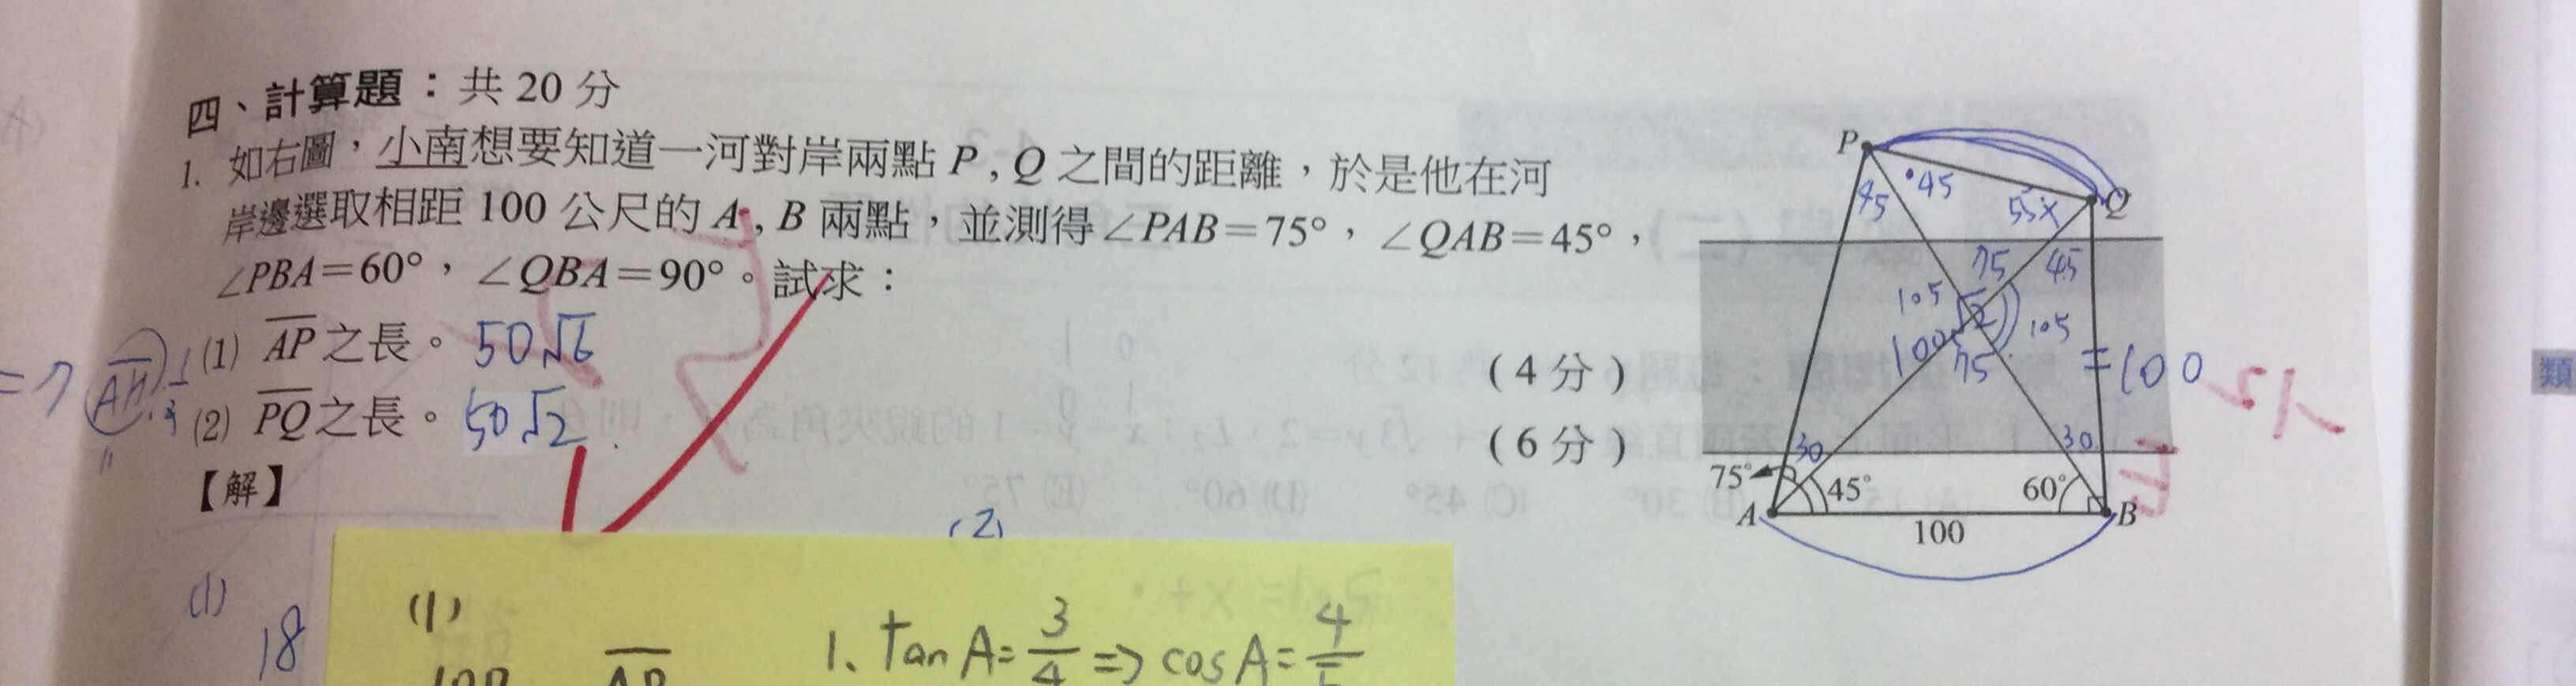 四、計算題：共 20 分
1. 如右圖，小南想要知道一河對岸兩點 P , Q 之間的距離，於是他在河
岸邊選取相距 100 公尺的 A , B 兩點，並測得∠PAB＝75°，∠QAB＝45°，
∠PBA＝60°，∠QBA＝90°。試求：
(1) AP之長。 50√6 (4 分)
(2) PQ之長。 50√2 (6 分)
【解】
(1)
18
(2)
(1)
1. tan A = 3/4 => cos A = 4/5
P
Q
45
45
55
x
75
45
105
105
100
75
=100
30
30
75°
45°
60°
A
B
100
類